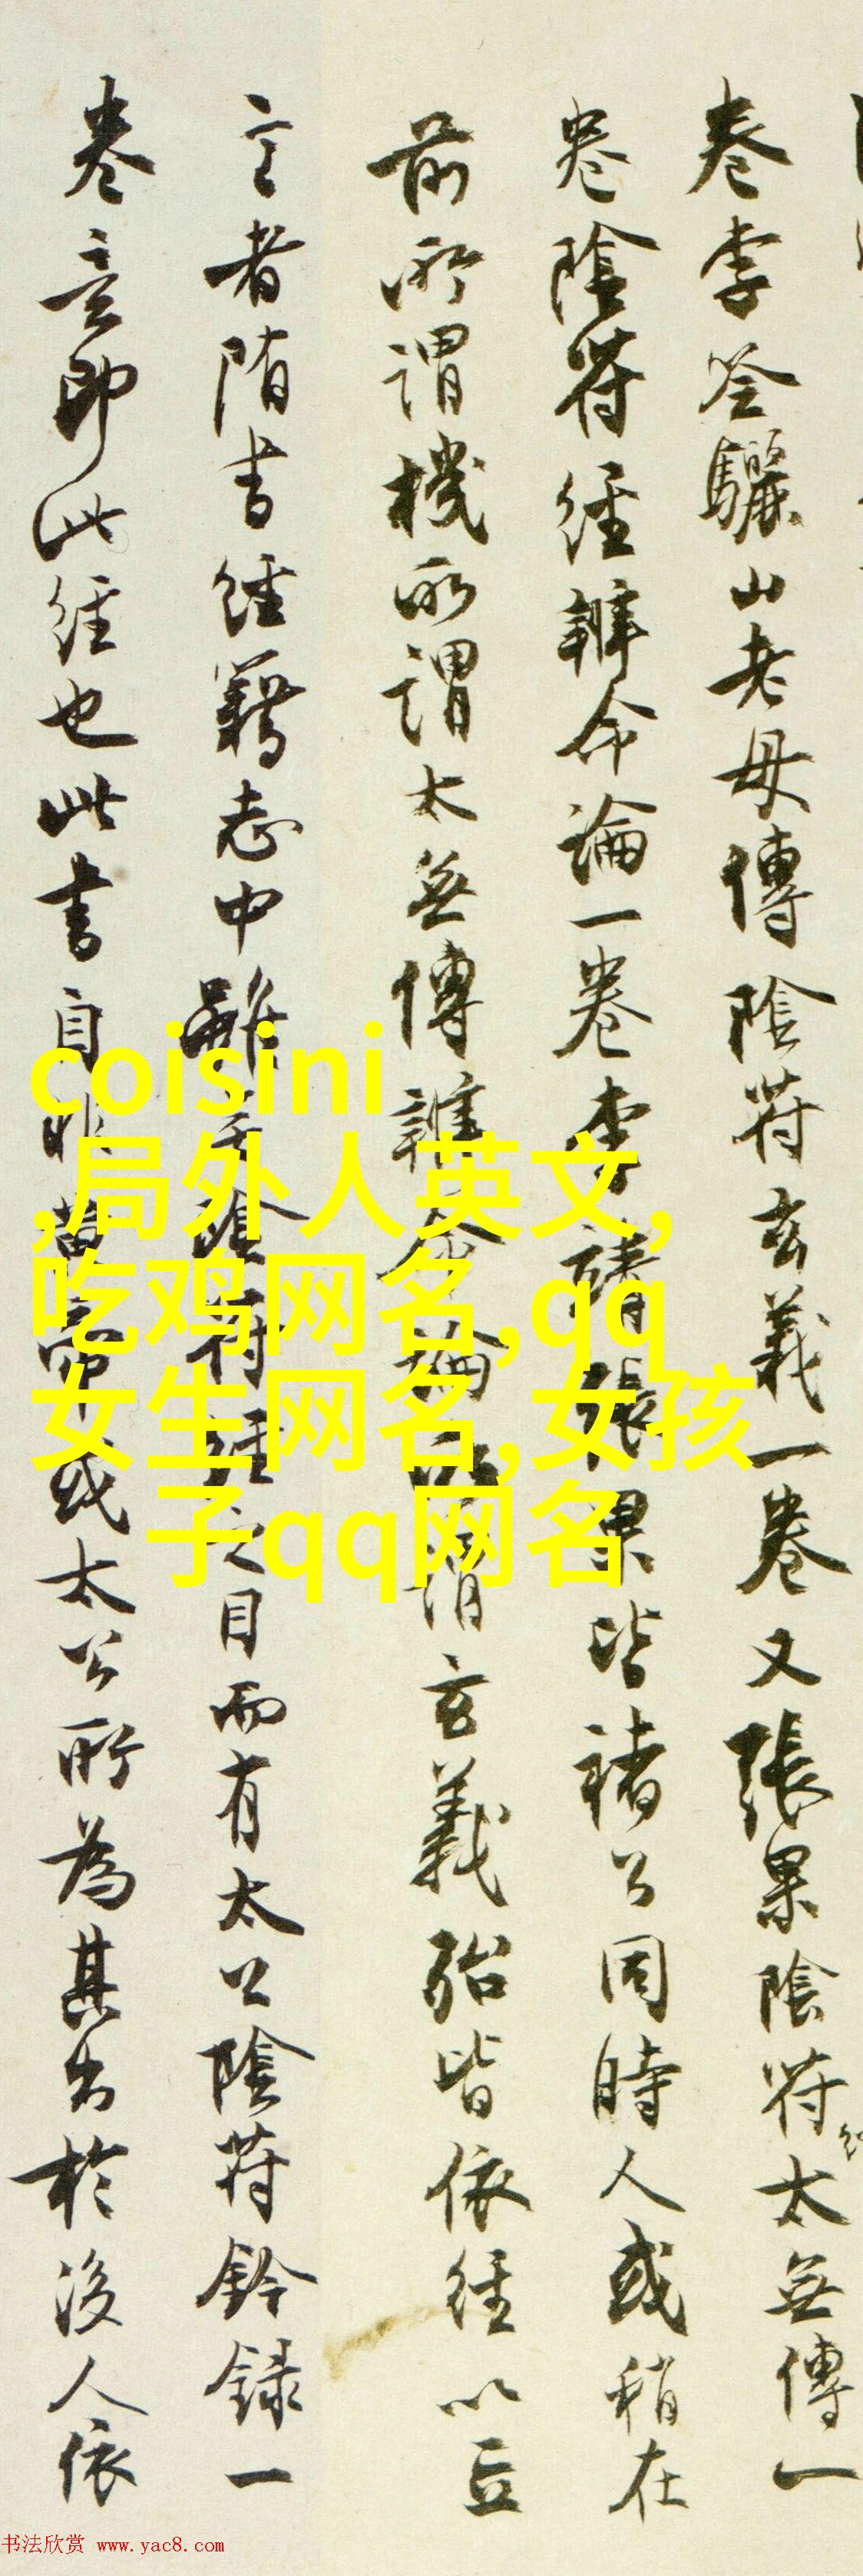 卷李筌驪山老母傳陰符玄義一卷又張果陰符太無傳一
卷陰符經辨命論一卷李靖張果皆褚公同時人或稍在
前所謂機所謂太無傳辨命論所謂玄義殆皆依經以立
言者隋書經籍志中雖無陰符經之目而有太公陰符鈐録一
卷意即此經也此書自非黃帝或太公所為其出於後人依
coisini
,局外人英文,
吃鸡网名,qq
女生网名,女孩
子qq网名
书法欣赏 www.yac8.com